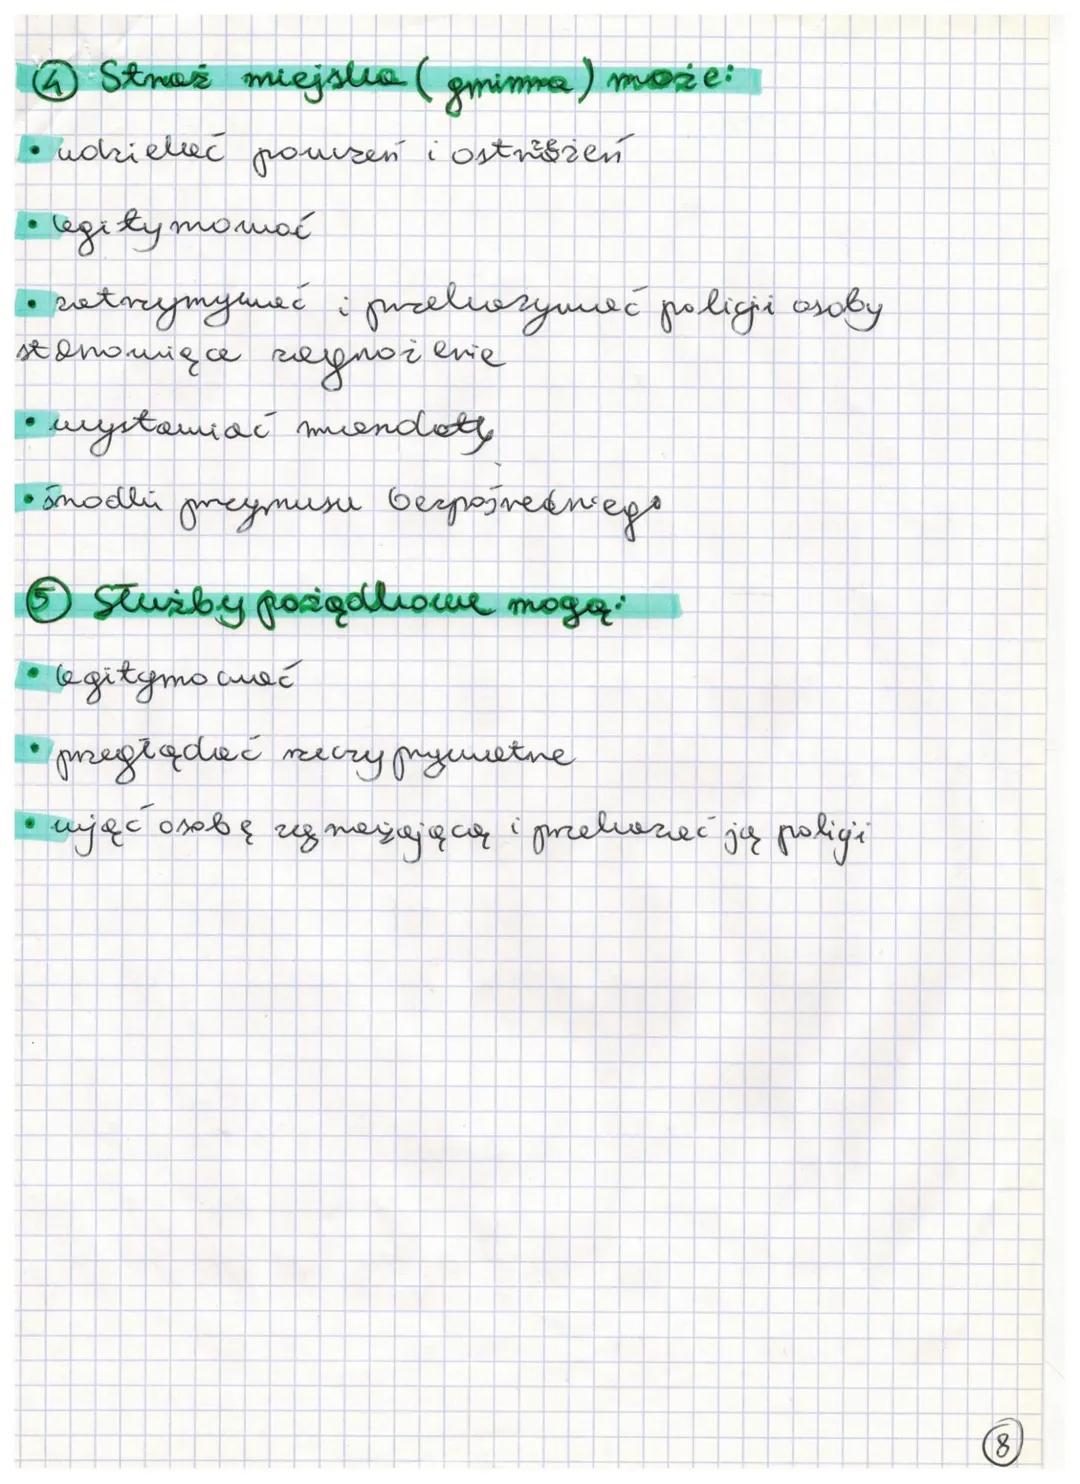 ④ Straż miejska (gminna) może:
• udzielać pouczeń i ostrzeżeń
• legitymować
• zatrzymywać i przekazywać policji osoby
stanowiące zagrożenie
• wystawiać mandaty
• środki przymusu bezpośredniego
⑤ Służby pożądkowe mogą:
• legitymować
• przeglądać rzeczy prywatne
• ująć osobę zagrażającą i przekazać ją policji
⑧